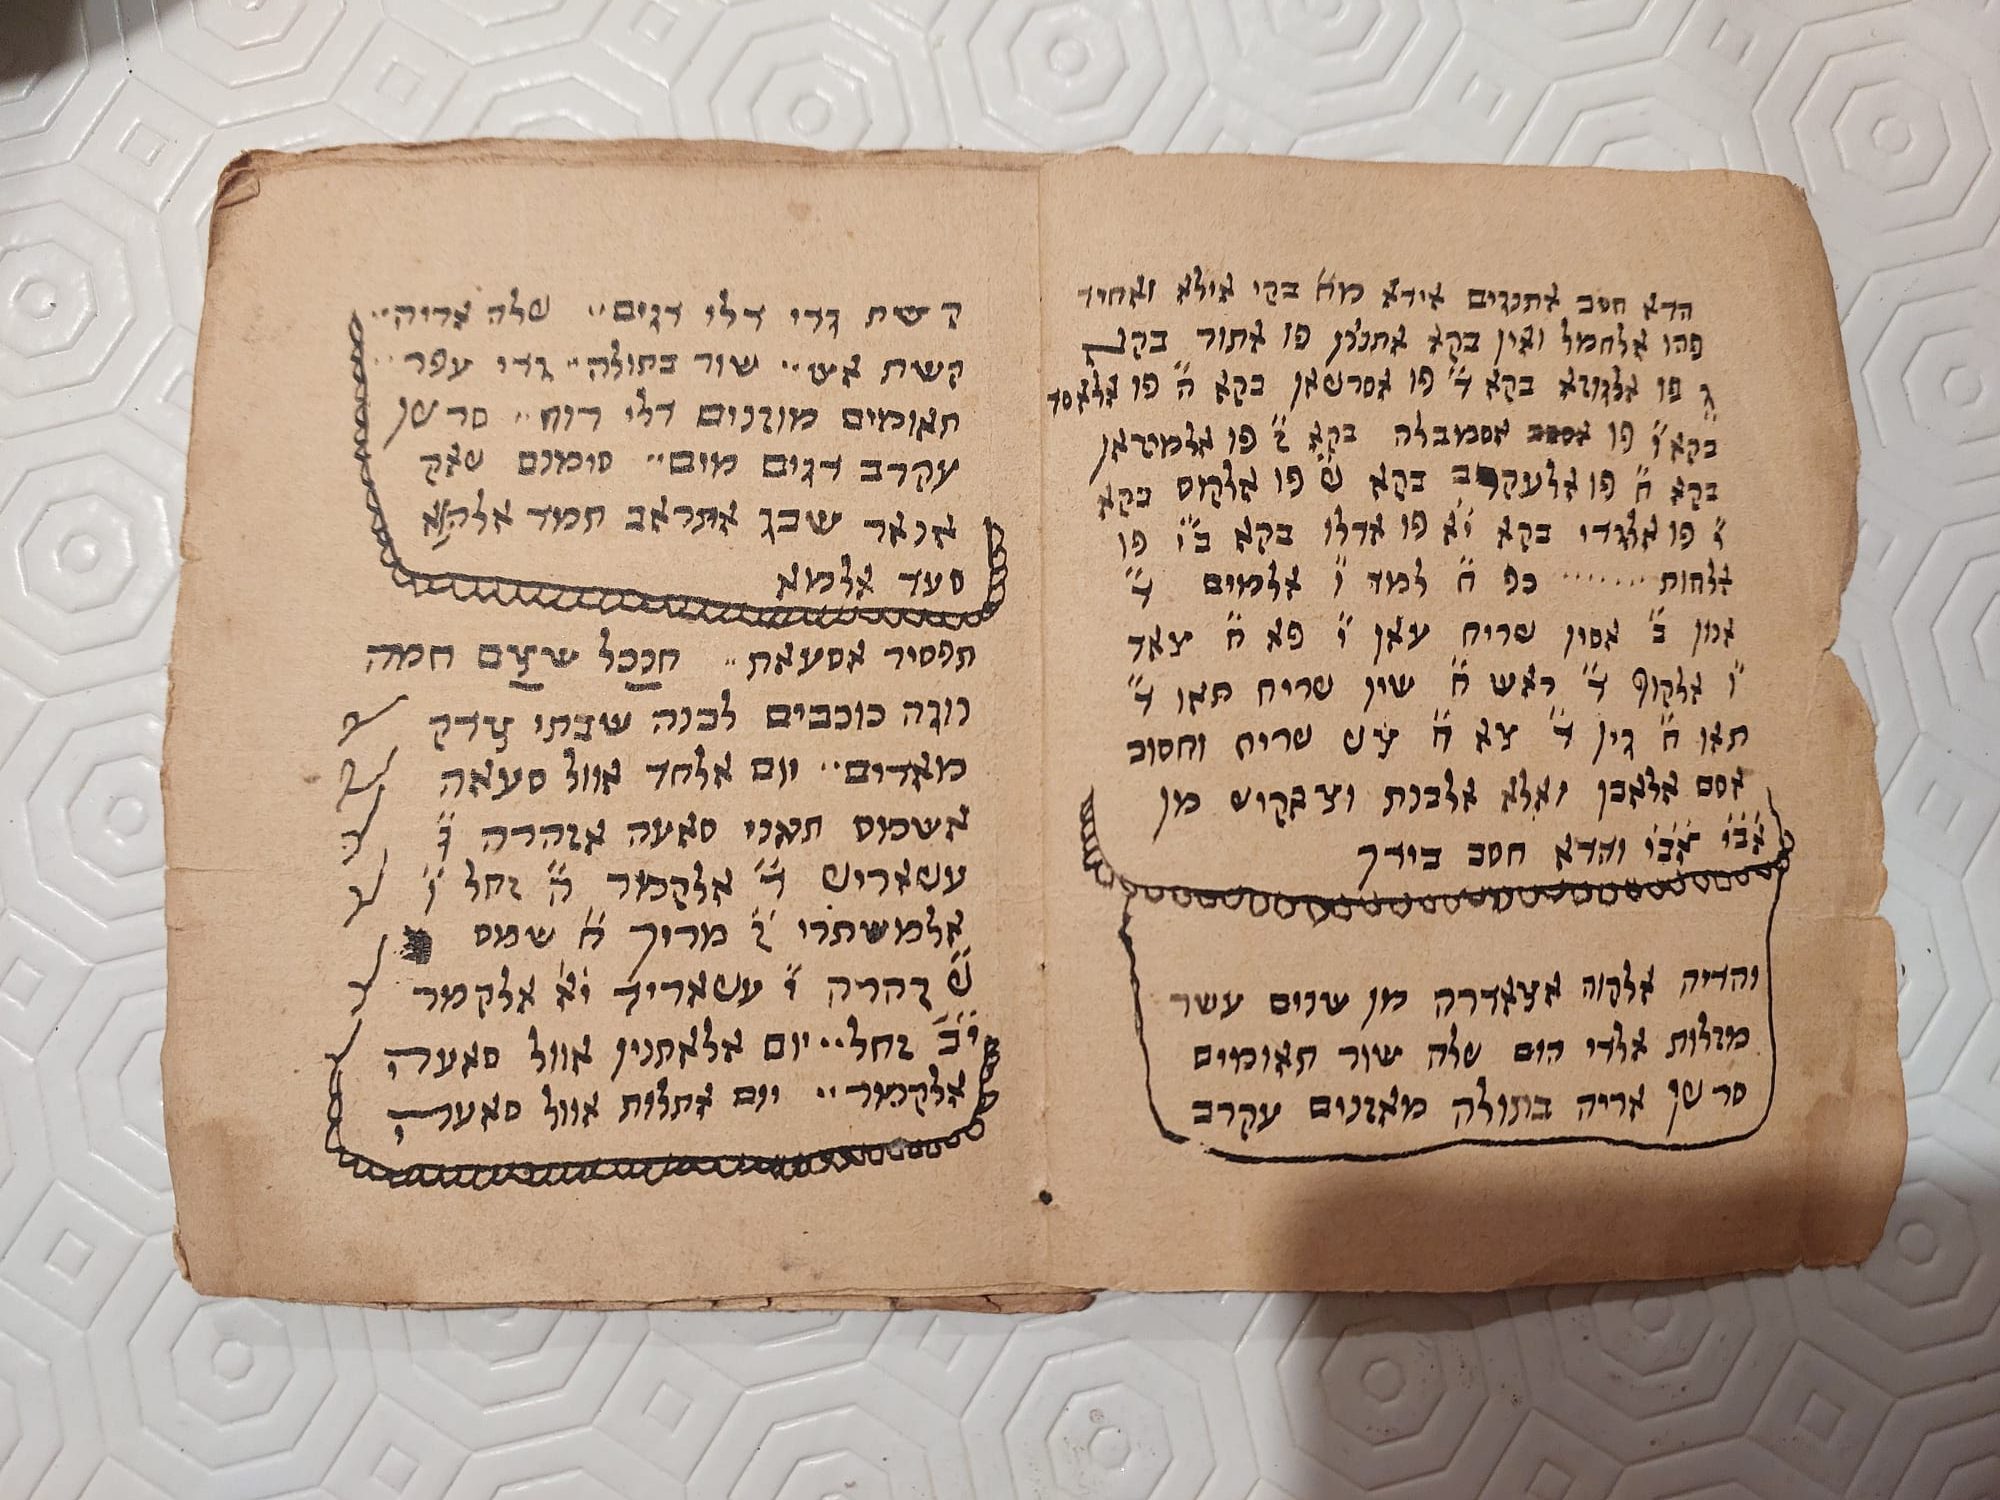 הדא חסב אתנגים אידא מא̈ בקי אילא ואחיד
פהו אלחמל ואין בקא אתנין פו אתור בקא
ג̈ פו אלגוזא בקא ד̈ פו אסרשאן בקא ה̈ פו אלאסד
בקא ו̈ פו אסמבלה בקא ז̈ פו אלמיזאן
בקא ח̈ פו אלעקרב בקא ט̈ פו אלקוס בקא
י̈ פו אלגדי בקא י̈א̈ פו אדלו בקא ב̈י̈ פו
אלחות ....... כפ ח̈ למד ו̈ אלמים ד̈
אנון ב̈ אסין שריח עאן י̈ פא ח̈ צאד
ו̈ אלקוף ד̈ ראש ח̈ שין שריח תאו ד̈
תאו ח̈ גין ד̈ צא ח̈ צש שריח וחסוב
אסם אלאבן ואלא אלבנת וצבקוש מן
י̈ב̈י̈ י̈ב̈י̈ והדא חסב בידך
והדיה אלקוה אצאדרה מן שנים עשר
מזלות אלדי הום שלה שור תאומים
סרשן אריה בתולה מאזנים עקרב
קשת גדי דלי דגים.. שלה אריה..
קשת אש.. שור בתולה.. גדי עפר..
תאומים מוזנים דלי רוח.. סרשן
עקרב דגים מים.. סימנם שאק
אנאר שבג אתראב תמד אלהוא
סעד אלמא
תפסיר אסעאת.. חנכל שצם חמה
נוגה כוכבים לבנה שבתי צדק
מאדים.. יום אלחד אוול סעאה
אשמס תאני סאעה אזהרה ג̈
עשאריש ד̈ אלקמר ה̈ זחל ו̈
אלמשתרי ז̈ מריך ח̈ שמס
ט̈ זהרה י̈ עשאריד י̈א̈ אלקמר
י̈ב̈ זחל.. יום אלאתנין אוול סאעה
אלקמר.. יום אתלות אוול סאעה